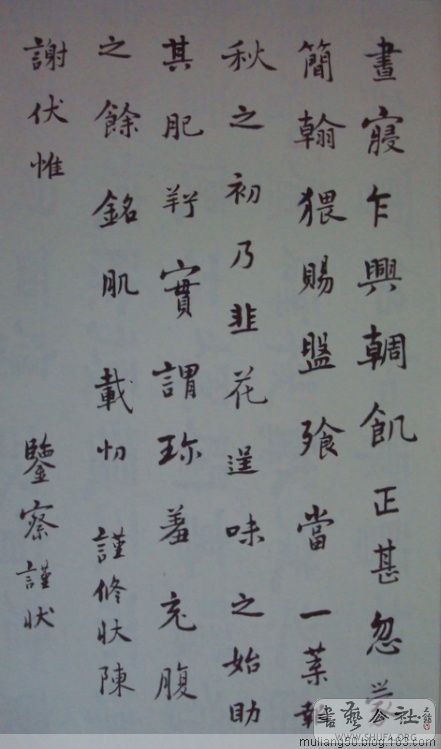 晝寢乍興輖飢正甚忽蒙
簡翰猥賜盤飧當一葉報
秋之初乃韭花逞味之始助
其肥羜實謂珍羞充腹
之餘銘肌載切謹修狀陳
謝伏惟
鑒察謹狀
書藝公社
WWW.SHUFA.ORG
muliang90.blog.163.com